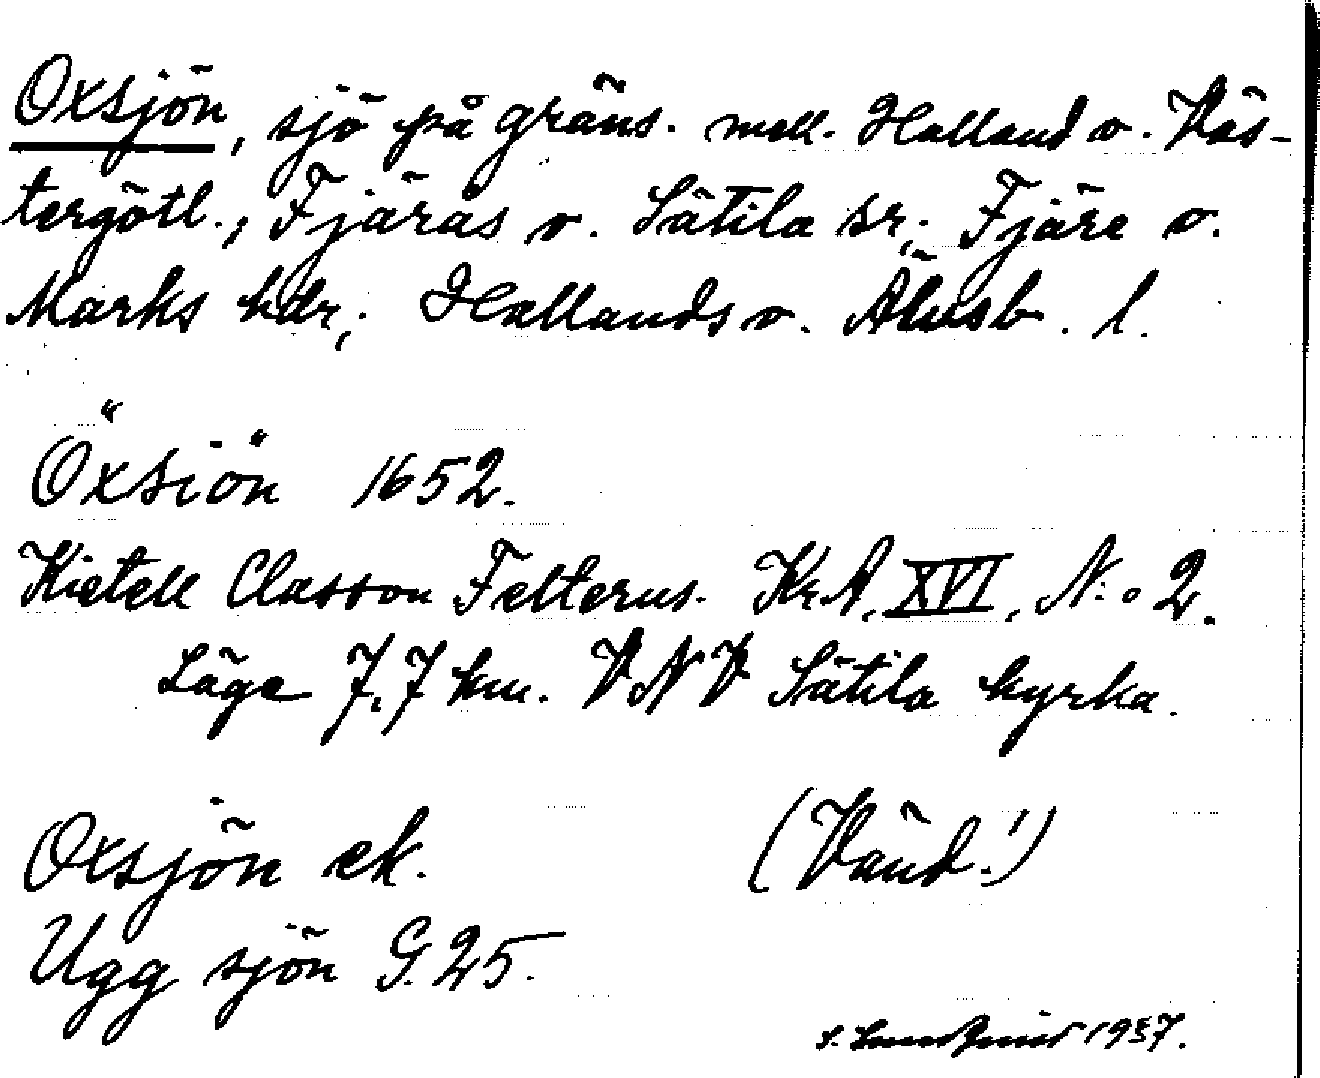 Oxsjön, sjö på gräns. mell. Halland o. Väs-
tergötl., Fjärås o. Sätila sr; Fjäre o.
Marks hdr; Hallands o. Älvsb. l.
Öxsiön 1652.
Kietell Classon Felterus. Kr.A. XVI, N:o 2.
Läge 7,7 km. VNV Sätila kyrka.
Oxsjön ek. (Vänd!)
Ugg sjön G. 25.
1937.